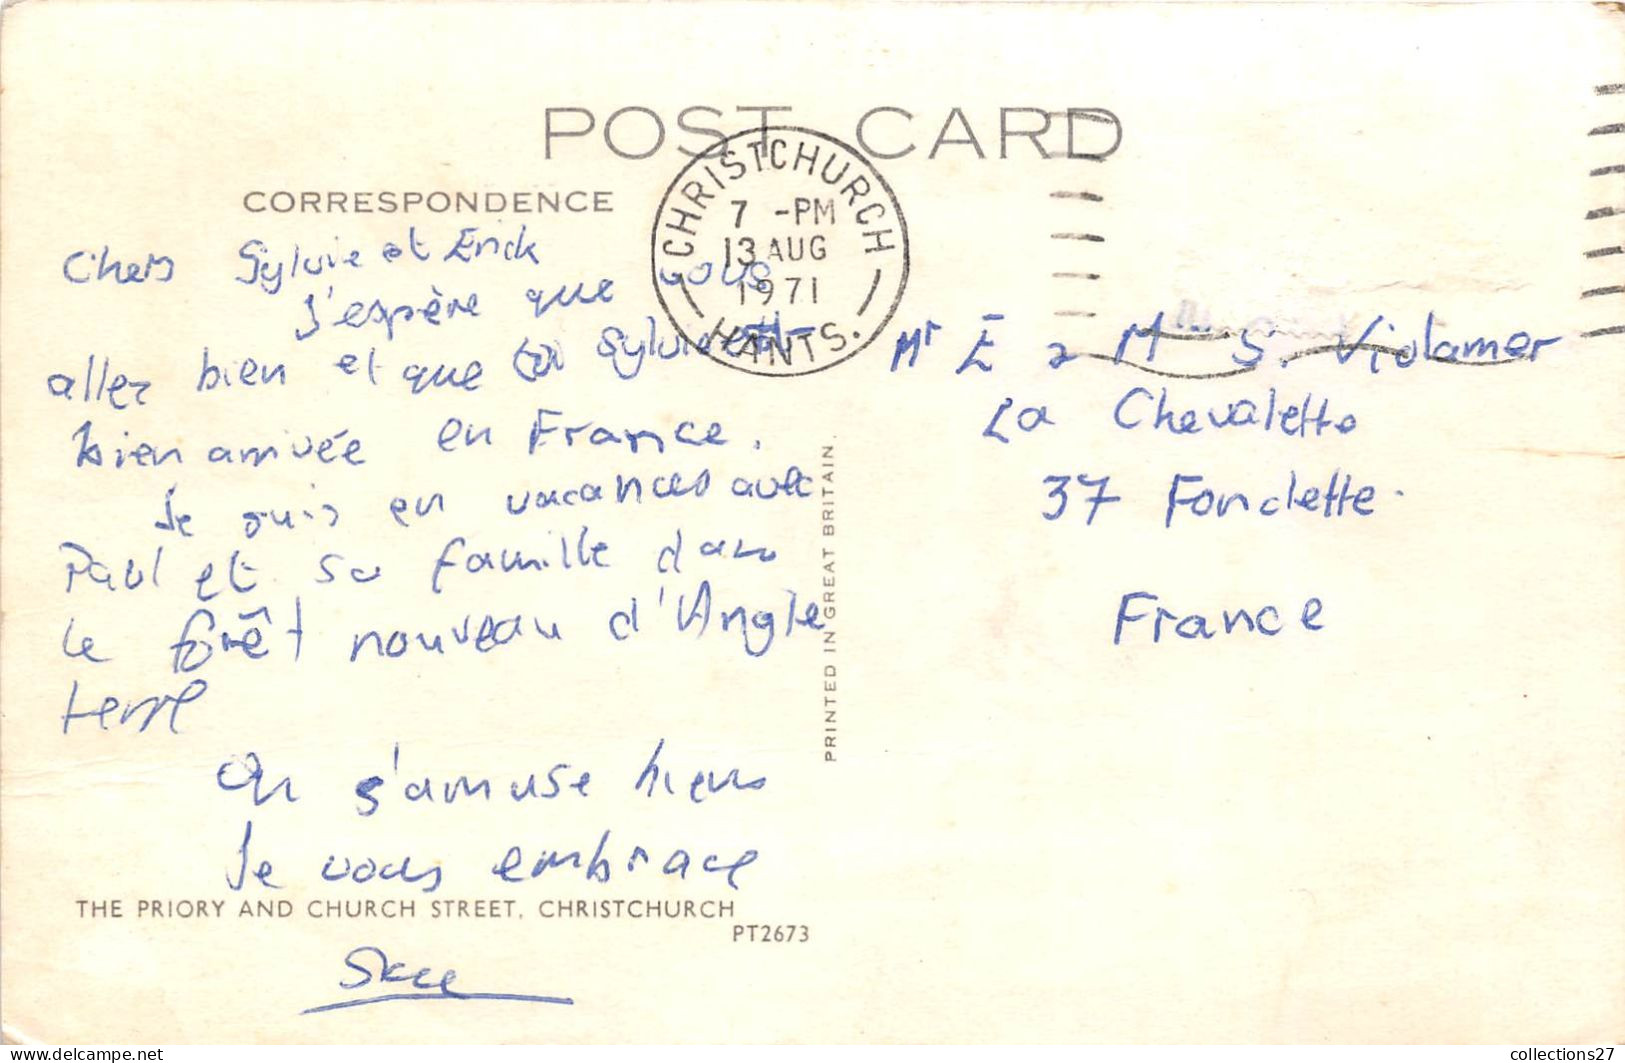 POST CARD
CORRESPONDENCE
CHRISTCHURCH
7 -PM
13 AUG
1971
HANTS.
Chers Sylvie et Erick
J'espère que vous
allez bien et que Sylvie est
bien arrivée en France.
Je suis en vacances avec
Paul et sa famille dans
le forêt nouveau d'Angle
terre
On s'amuse biens
Je vous embrace
THE PRIORY AND CHURCH STREET, CHRISTCHURCH
PT2673
PRINTED IN GREAT BRITAIN.
Mr E & Mme S. Violamer
La Chevalette
37 Fondette.
France
collections27